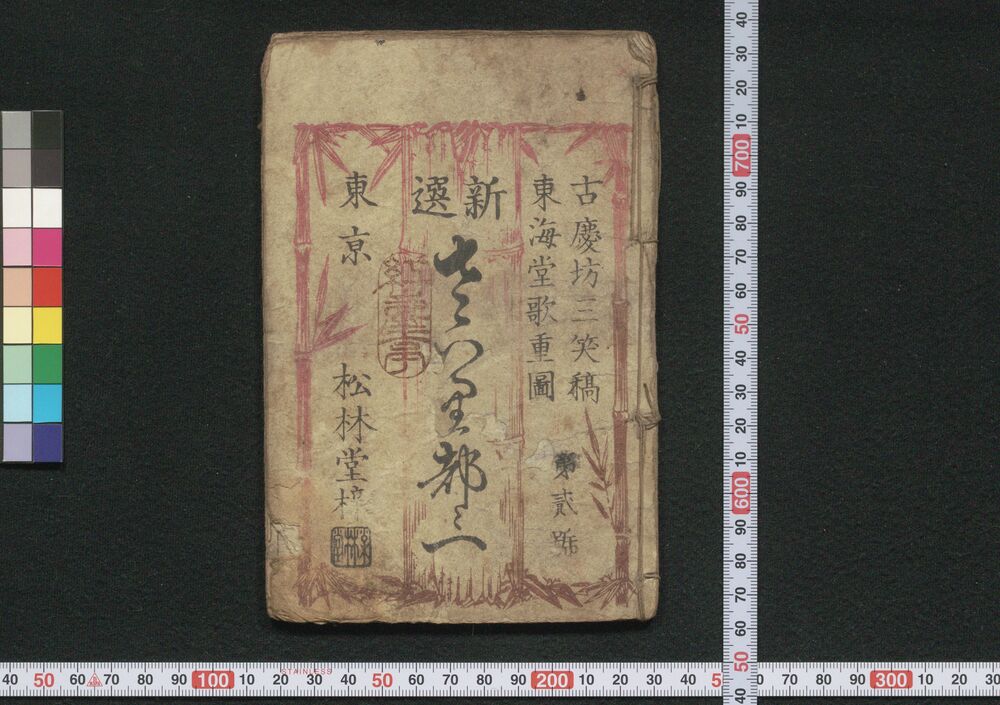 古慶坊三笑稿
東海堂歌重圖
第貳號
新選
さハ里都〻一
東京
松林堂梓
松林堂
STAINLESS
40 50 60 70 80 90 100 10 20 30 40 50 60 70 80 90 200 10 20 30 40 5 60 70 80 90 300 10 20 30
40 30 20 10 700 90 80 70 60 50 40 30 20 10 600 90 80 70 60 50 40